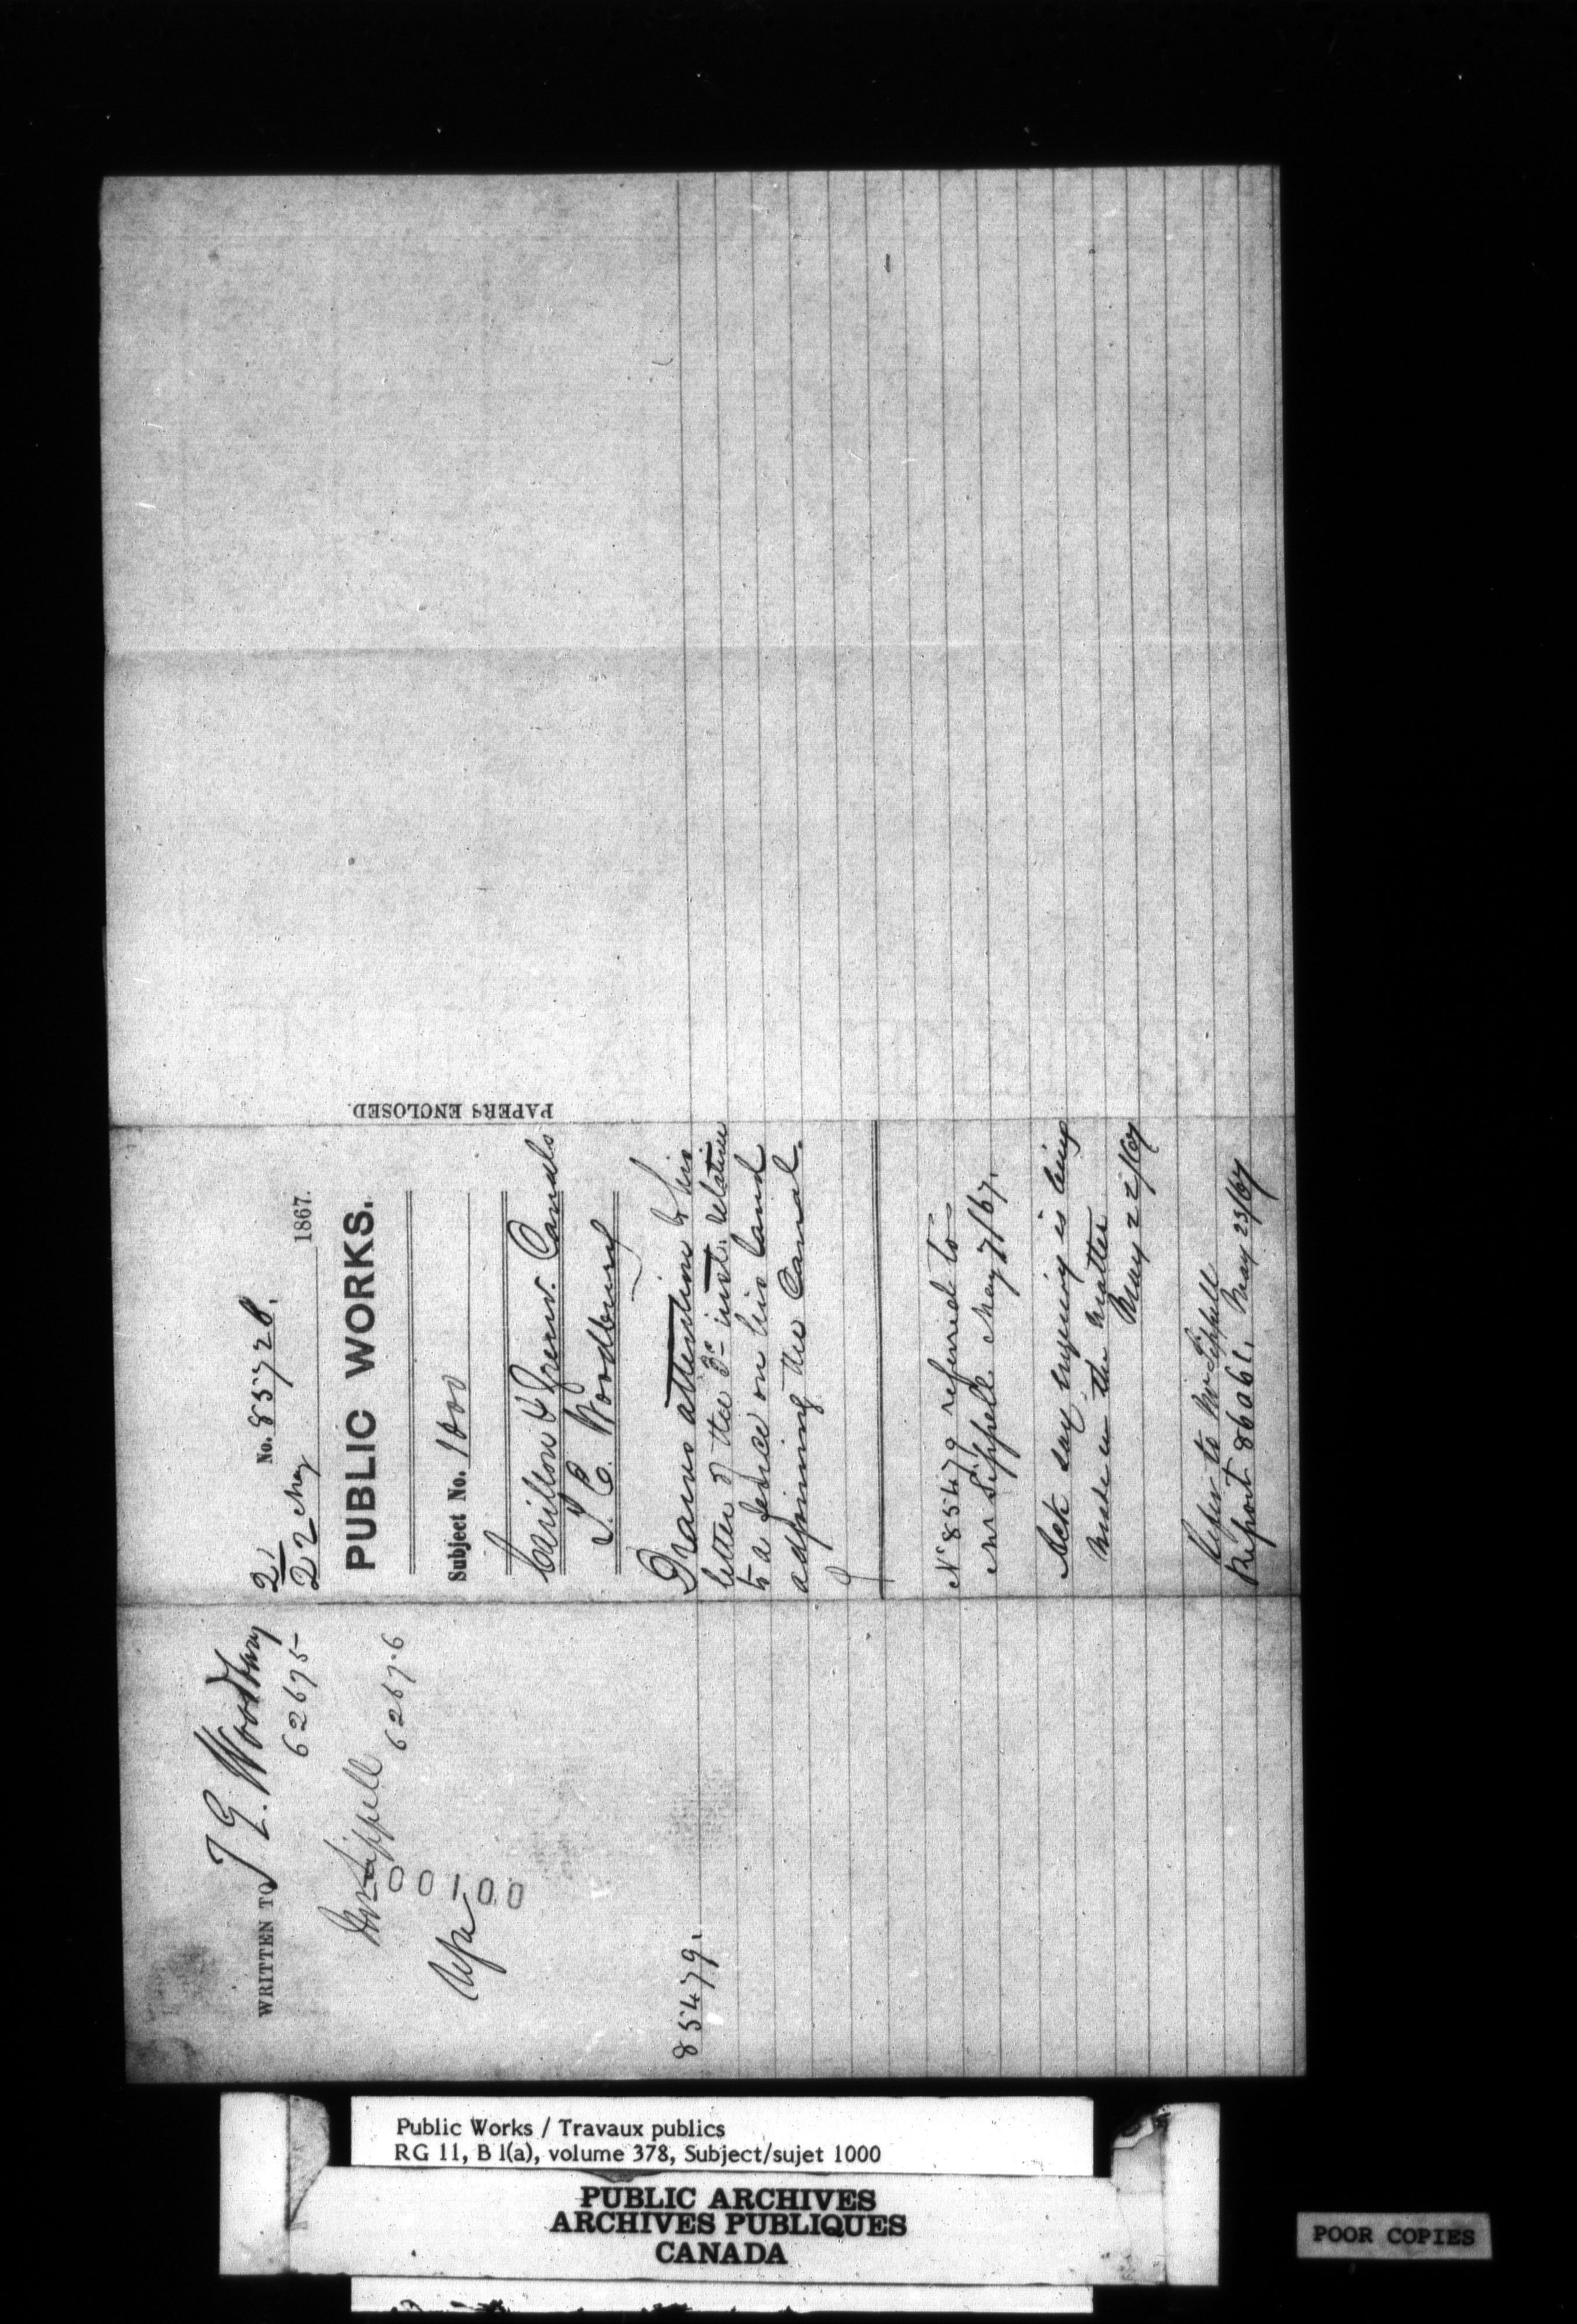 WRITTEN TO T E. Woodbury
62675
Mr Sippell
62676
00100
85479.
No. 85728.
21
22 May 1867.
PUBLIC WORKS.
Subject No. 1000
Carillon & Grenv. Canals
T. E. Woodbury
Draws attention to his
letter of the 3d inst. relative
to a fence on his land
adjoining the Canal.
No 85479 referred to
Mr Sippell May 7/67.
Ack say enquiry is being
made in the matter
May 22/67
Refer to Mr Sippell
Report 86061. May 23/67
PAPERS ENCLOSED.
Public Works / Travaux publics
RG 11, B 1(a), volume 378, Subject/sujet 1000
PUBLIC ARCHIVES
ARCHIVES PUBLIQUES
CANADA
POOR COPIES